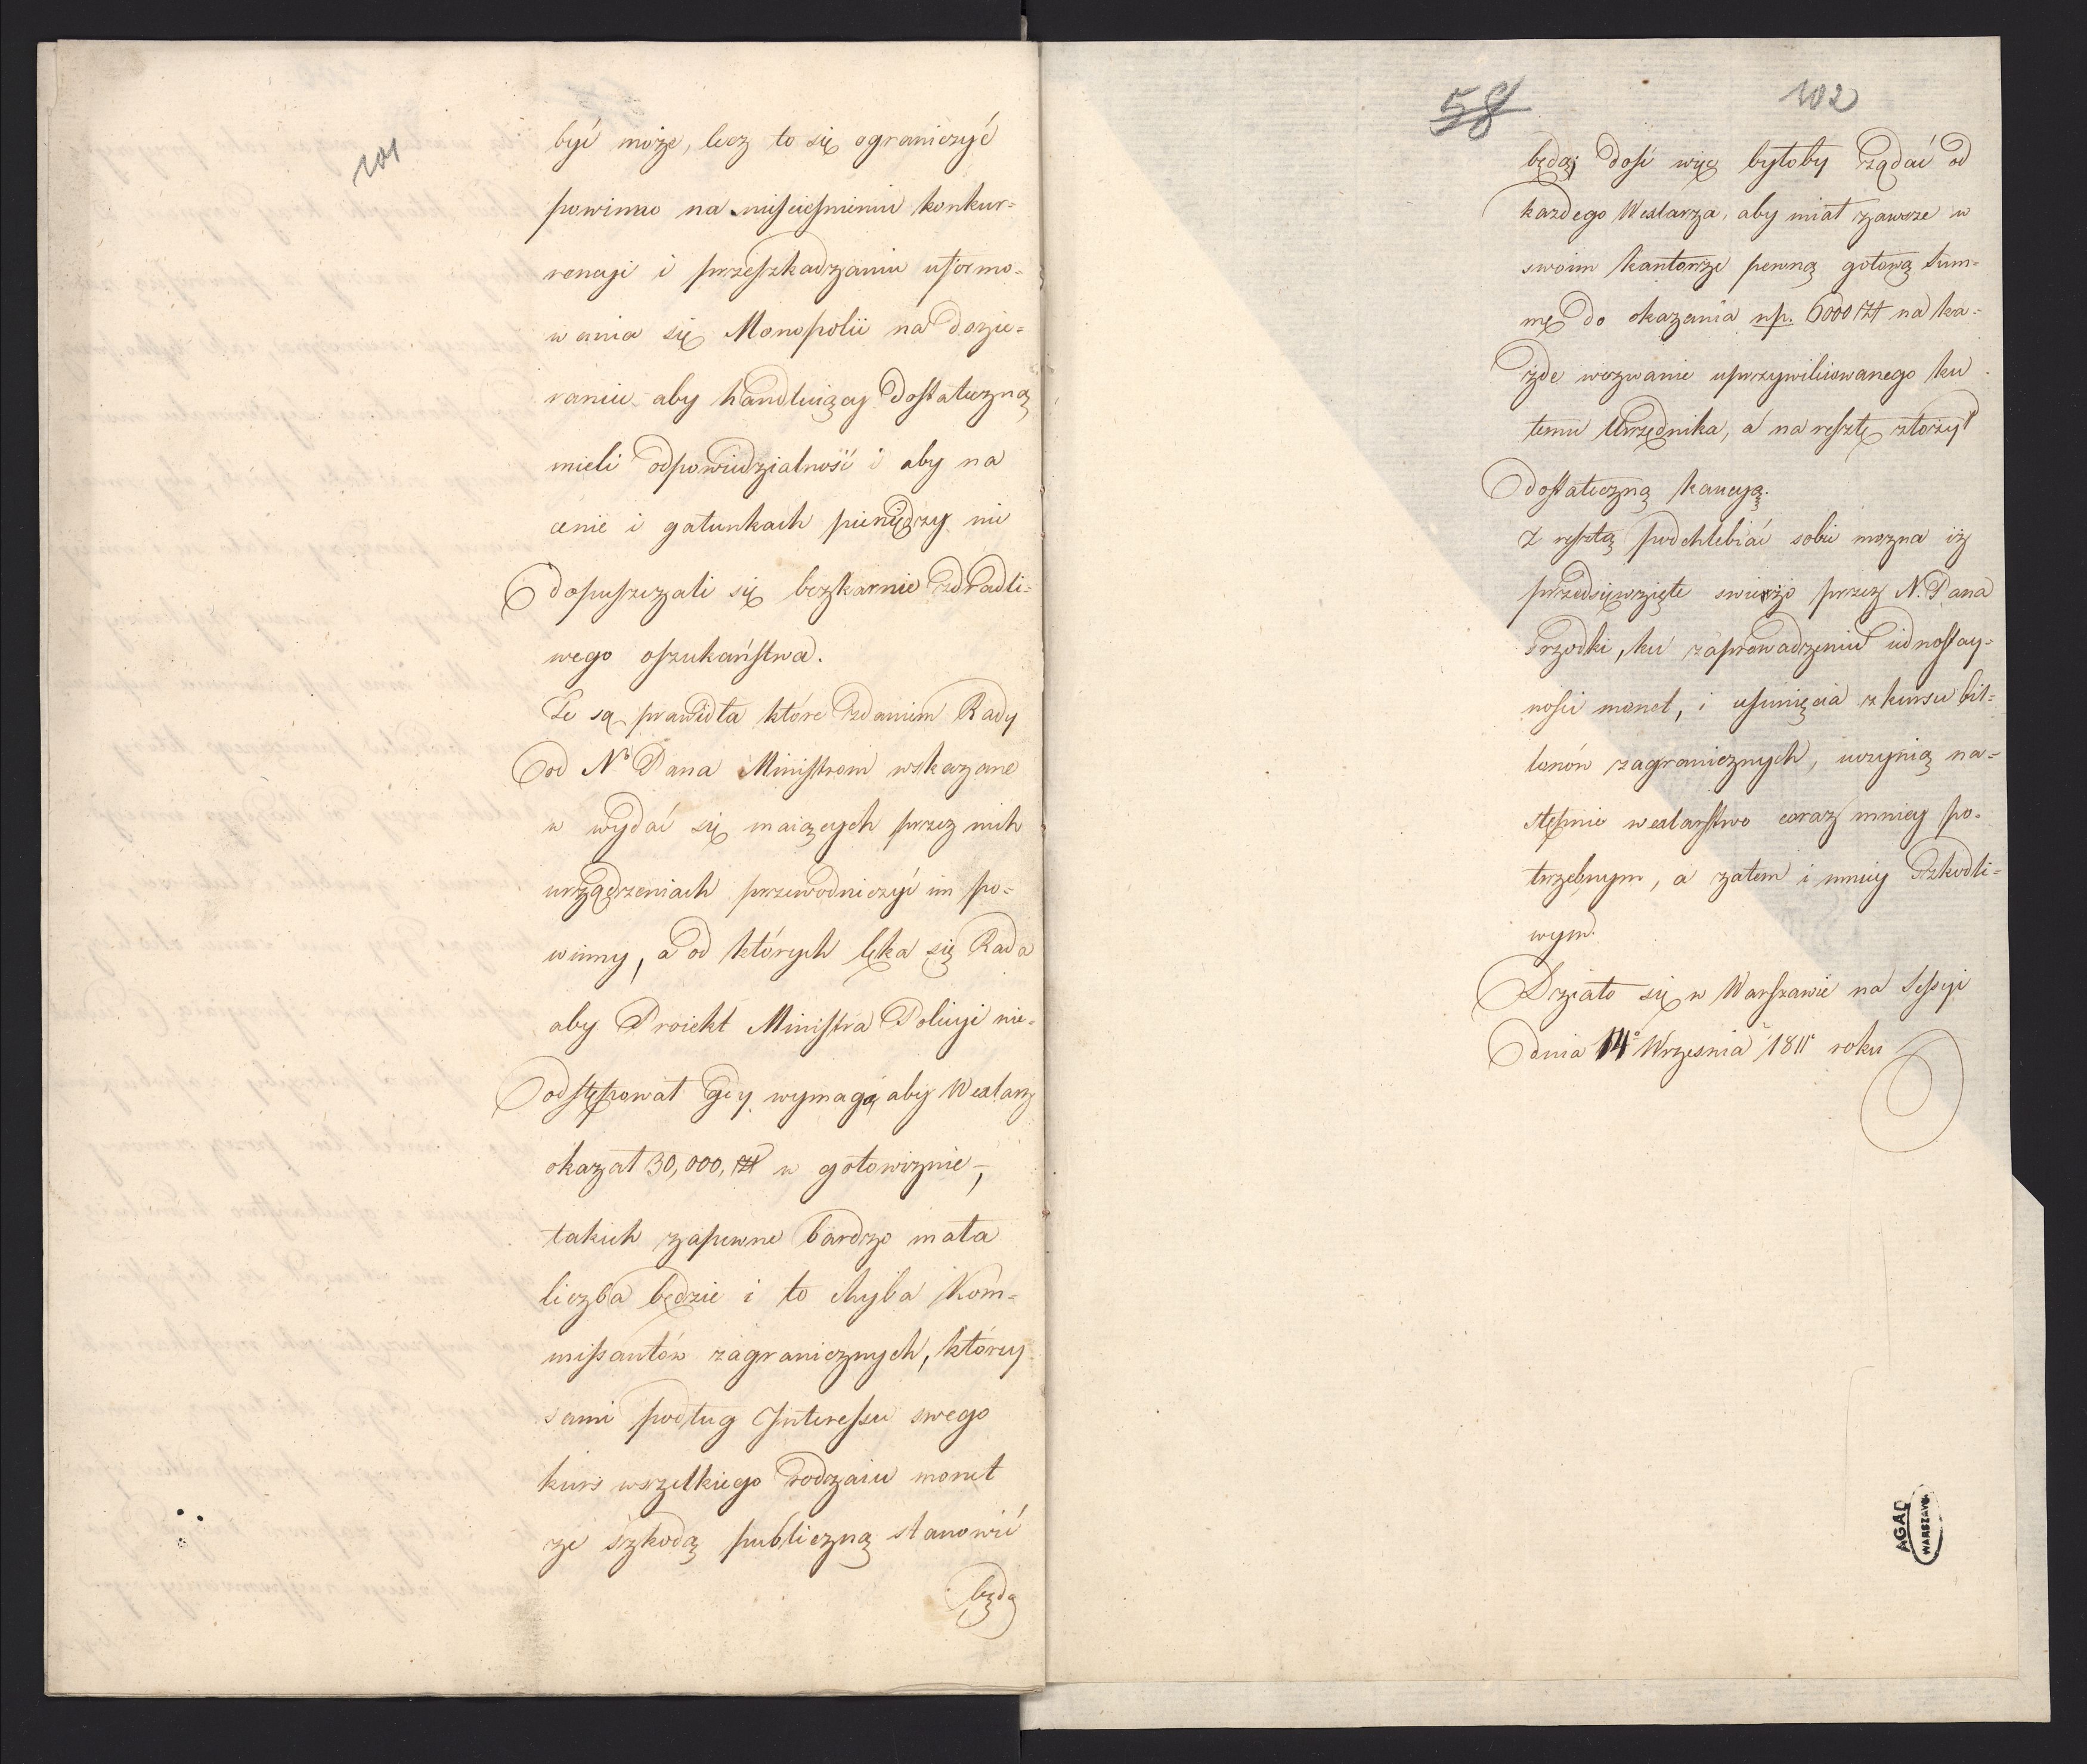 101
być może, lecz to się ograniczyć
powinno na nieścieśnieniu konkur=
rencyi i przeszkadzaniu uformo=
wania się Monopolii na dozie=
raniu aby handluiący dostateczną
mieli odpowiedzialność i aby na
cenie i gatunkach pieniędzy nie
dopuszczali się bezkarnie zdradli=
wego oszukaństwa.
Te są prawidła które zdaniem Rady
od N° Pana Ministrom wskazane
w wydać się maiących przez nich
urządzeniach przewodniczyć im po=
winny, a od których lęka się Rada
aby Proiekt Ministra Policyi nie=
odstępował gdy wymaga, aby Wexlarz
okazał 30,000, Zł w gotowiznie,
takich zapewne bardzo mała
liczba będzie i to chyba Kom=
missantów zagranicznych, którzy
sami podług Interessu swego
kurs wszelkiego rodzaiu monet
ze szkodą publiczną stanowić
będą
58 102
będą; dość więc byłoby żądać od
każdego Wexlarza, aby miał zawsze w
swoim kantorze pewną gotową Sum=
mę do okazania np. 6000 Zł na ka=
żde wezwanie uprzywiliiowanego ku
temu Urzędnika, á na resztę złożył
dostateczną kaucyą.
Z resztą podchlebiać sobie można iż
przedsięwzięte swieżo przez N. Pana
Srzodki, ku zaprowadzeniu iednostay=
ności monet, i usunięcia z kursu bil=
lonów zagranicznych, uczynią na=
stępnie wexlarstwo coraz mniey po=
trzebnym, a zatem i mniey Szkodli=
wym.
Działo się w Warszawie na Sessyi
dnia 14° Września 1811 roku
AGAD
WARSZAWA